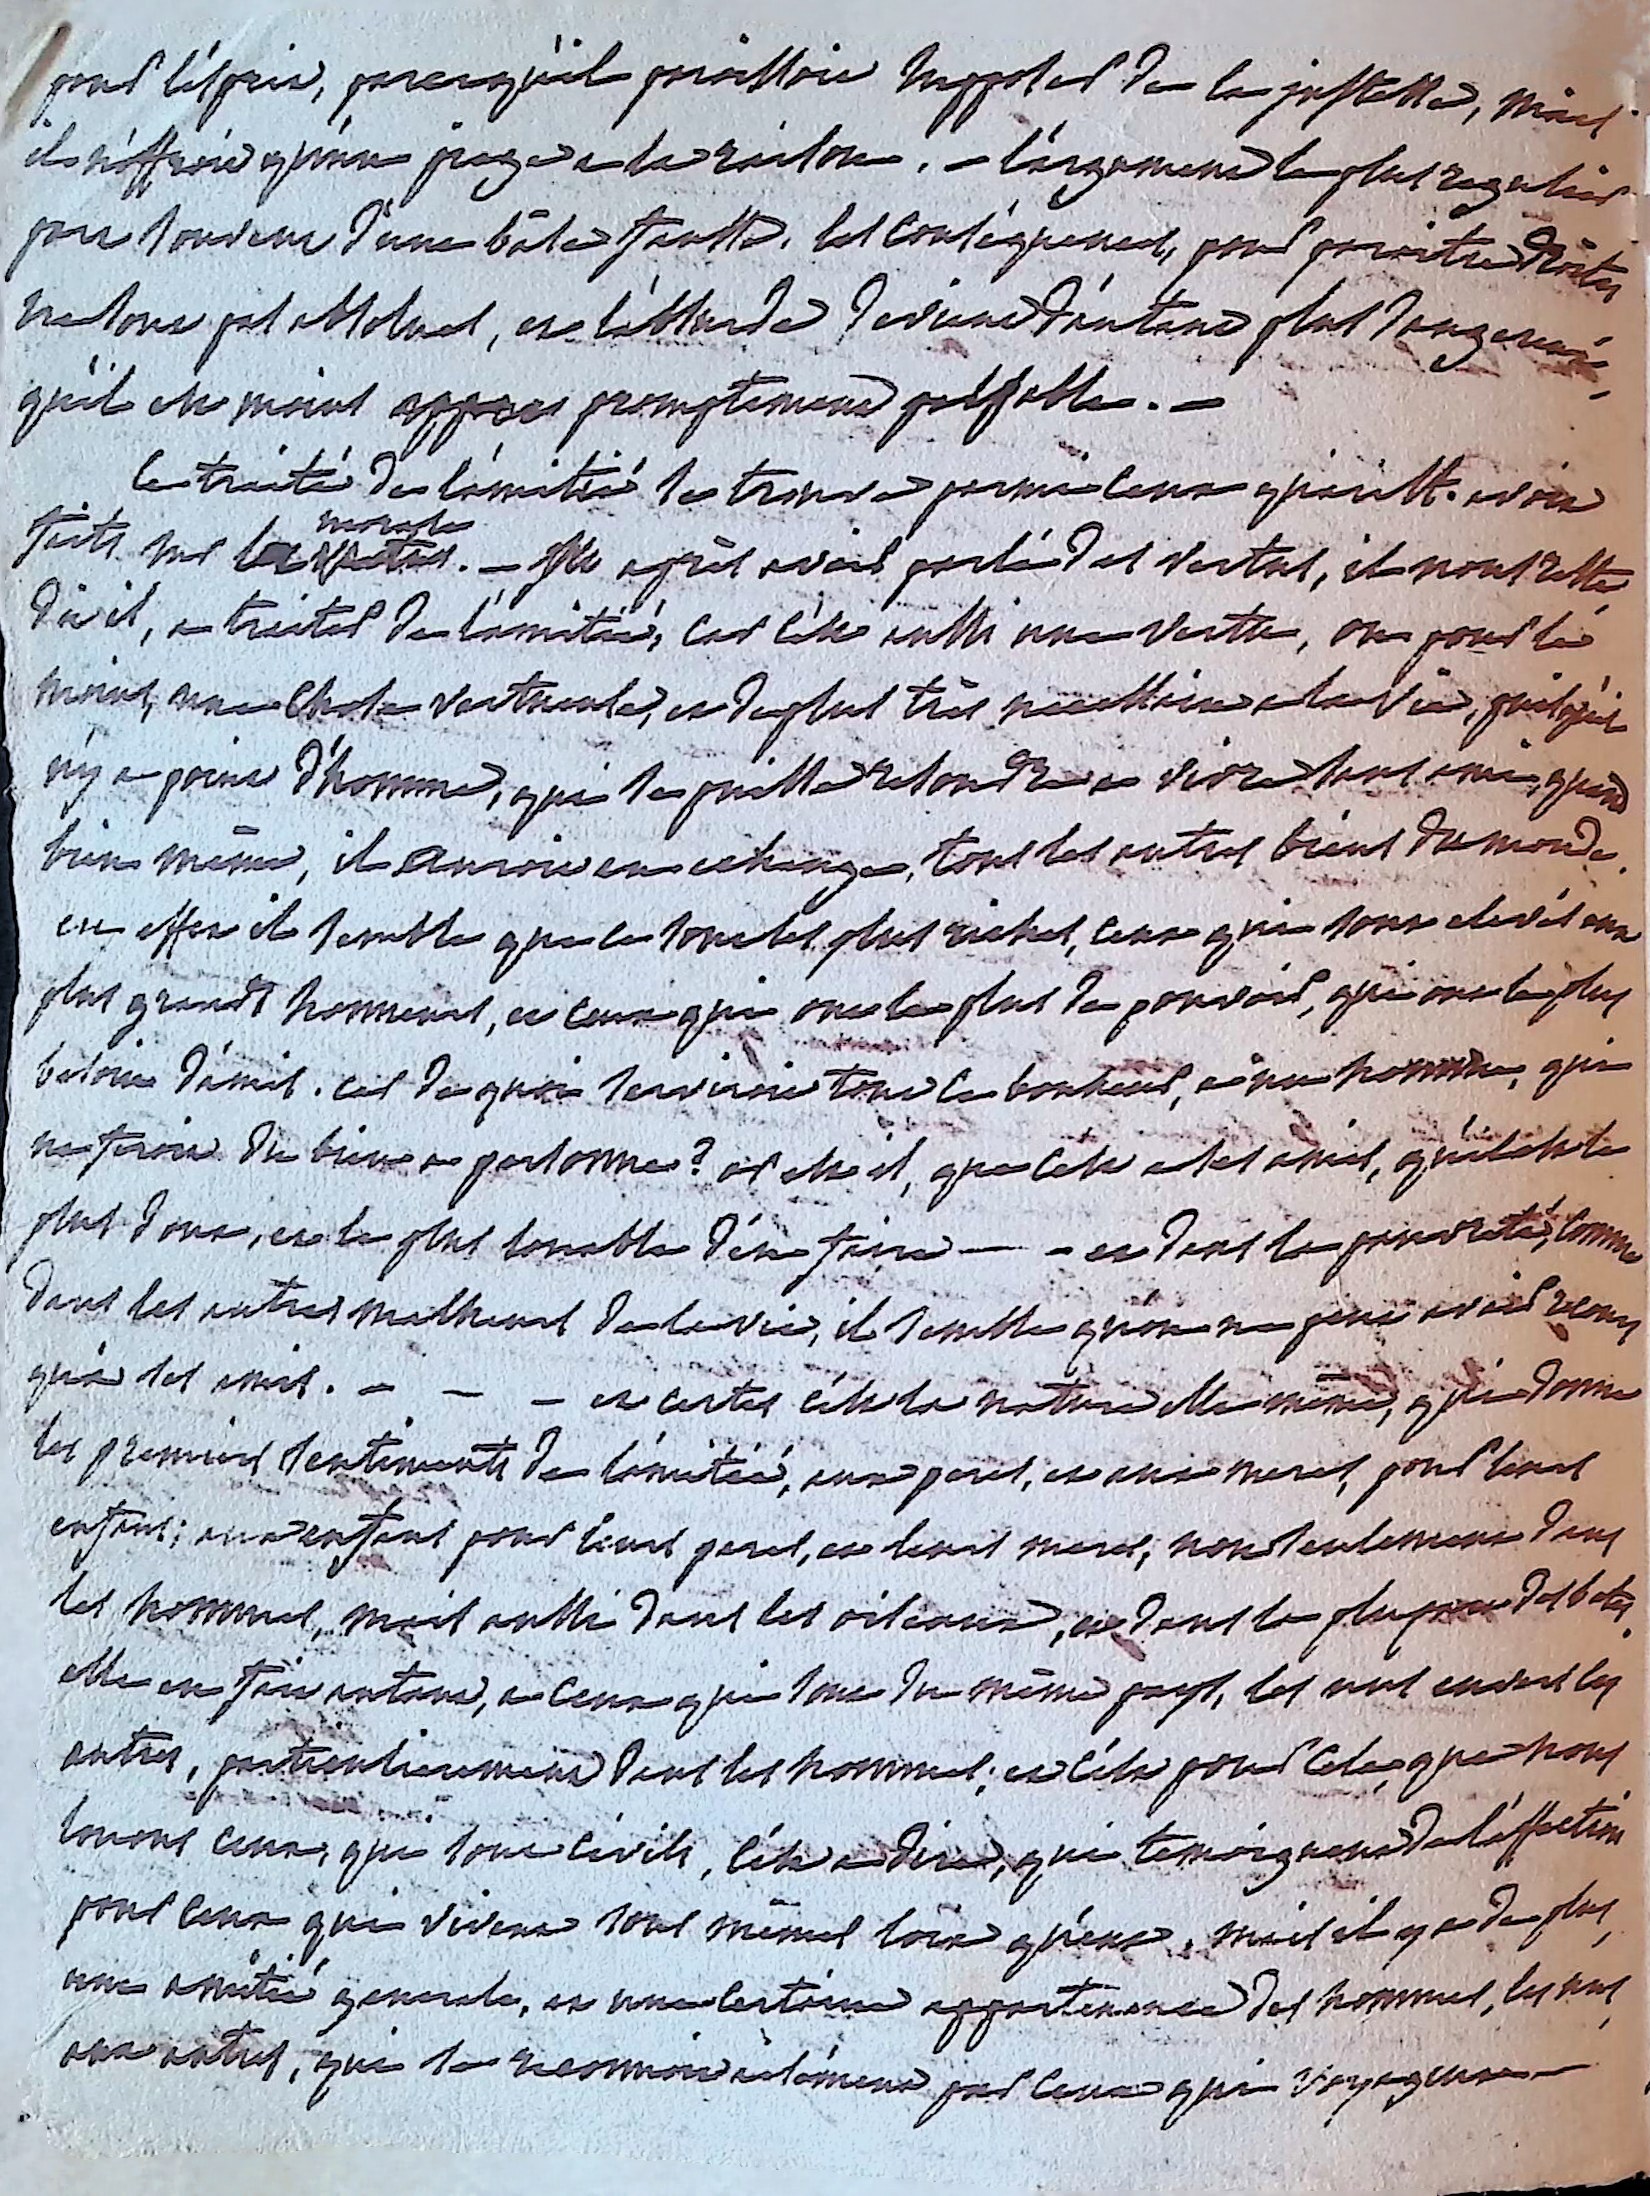 pour l'ésprit, parcequ'il paroissoit supposer de la justesse, mais
il n'offroit qu'un piege a la raison. — l'argument le plus regulier
part souvent d'une bâse fausse. les conséquences, pour paroitre droites
ne sont pas absolues, et l'absurde devient d'autant plus dangereux,
qu'il est moins promptement palpable. —
le traité de l'amitié se trouve parmi ceux qu'arist. avoit
faits sur la morale. — après avoir parlé des vertus, il nous reste,
dit il, a traiter de l'amitié, car c'est aussi une vertu, ou pour le
moins, une chose vertueuse, et de plus très necessaire a la vie, puisqu'il
n'y a point d'homme, qui se puisse resoudre a vivre sans amis, quand
bien même, il auroit en echange, tous les autres biens du monde.
en effet il semble que ce sont les plus riches, ceux qui sont elevés aux
plus grands honneurs, et ceux qui ont le plus de pouvoir, qui ont le plus
besoin d'amis. car de quoi serviroit tout ce bonheur, a un homme, qui
ne feroit du bien a personne? or est il, que c'est a ses amis, qu'il est le
plus doux, et le plus louable d'en faire — - et dans la pauvreté, comme
dans les autres malheurs de la vie, il semble qu'on ne peut avoir recours
qu'à ses amis. — — — et certes c'est la nature elle même, qui donne
les premiers sentiments de l'amitié, aux peres, et aux meres, pour leurs
enfans; aux enfans pour leurs peres, et leurs meres, non seulement dans
les hommes, mais aussi dans les oiseaux, et dans la plupart des betes.
elle en fait autant, a ceux qui sont du même pays, les uns envers les
autres, particulierement dans les hommes; et c'est pour cela, que nous
louons ceux, qui sont civils, c'est a dire, qui temoignent de l'affection
pour ceux qui vivent sous mêmes loix qu'eux. mais il y a de plus,
une amitié generale, et une certaine appartenance des hommes, les uns
aux autres, qui se reconnoit aisément par ceux qui voyagent —